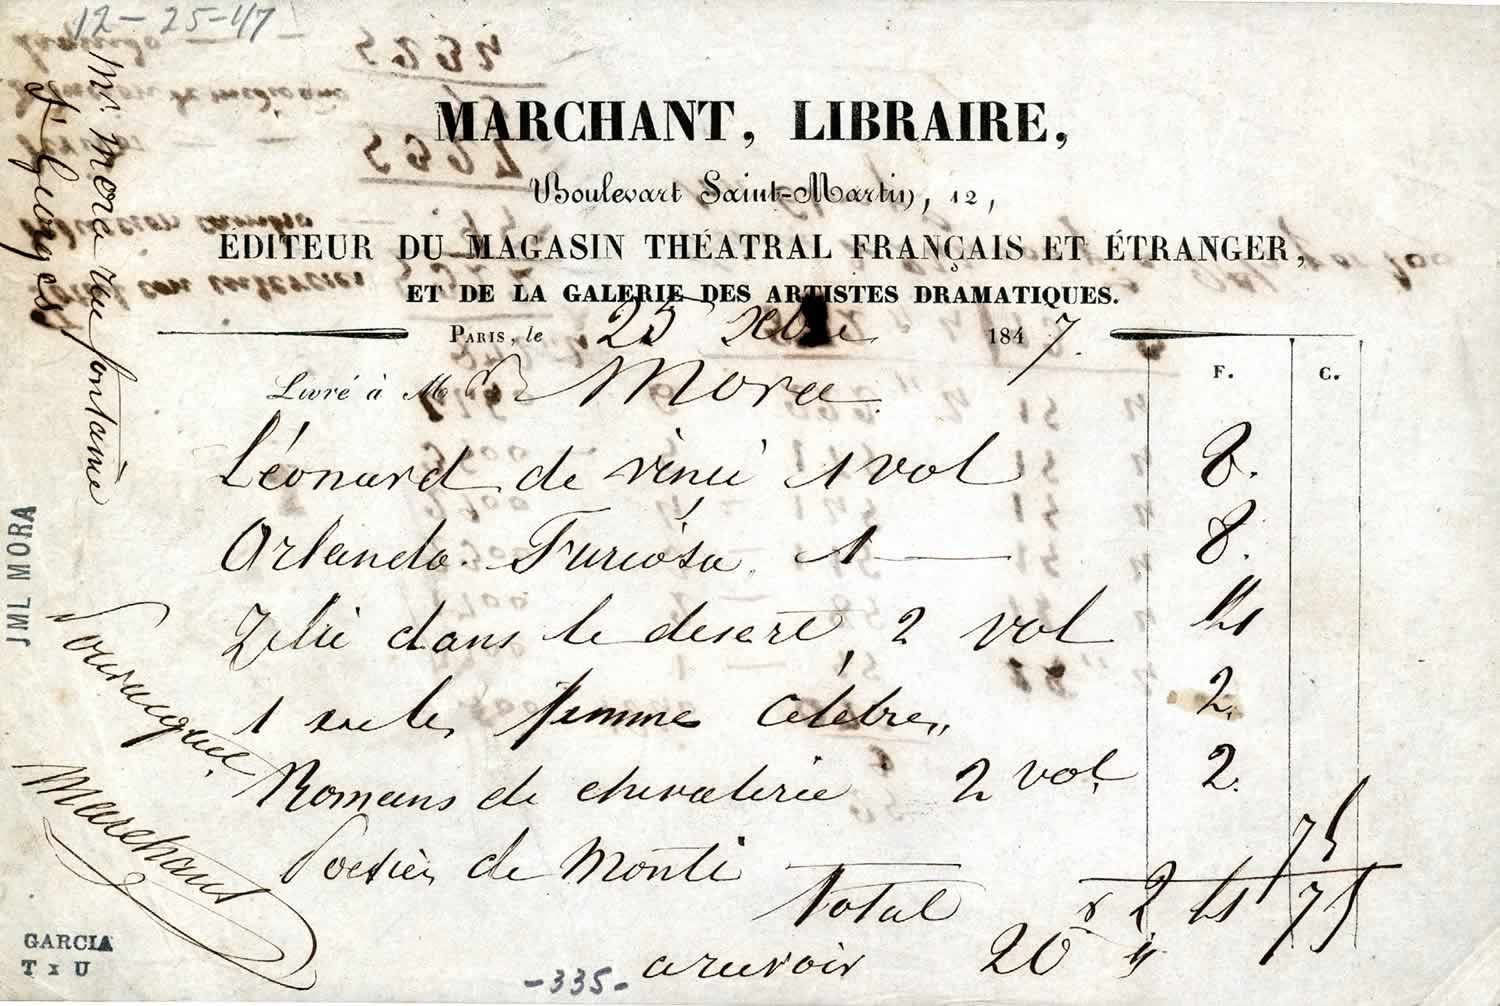 12-25-47
MARCHANT, LIBRAIRE,
Boulevart Saint-Martin, 12,
ÉDITEUR DU MAGASIN THÉATRAL FRANÇAIS ET ÉTRANGER,
ET DE LA GALERIE DES ARTISTES DRAMATIQUES.
PARIS, le 25 Xbre 1847.
Livré à Mr Mora
F. C.
Léonard de vinci 1 vol 8.
Orlando Furioso 1 — 8.
Zelie dans le desert, 2 vol
1 sur les femme Célèbre,, 2.
Romans de chevalerie 2 vol 2.
Poesies de Monti 75
Total 75
a recevoir 20
Mr Mora rue fontaine
St Georges
JML MORA
Pour acquit
Marchant
GARCIA
TxU
-335-